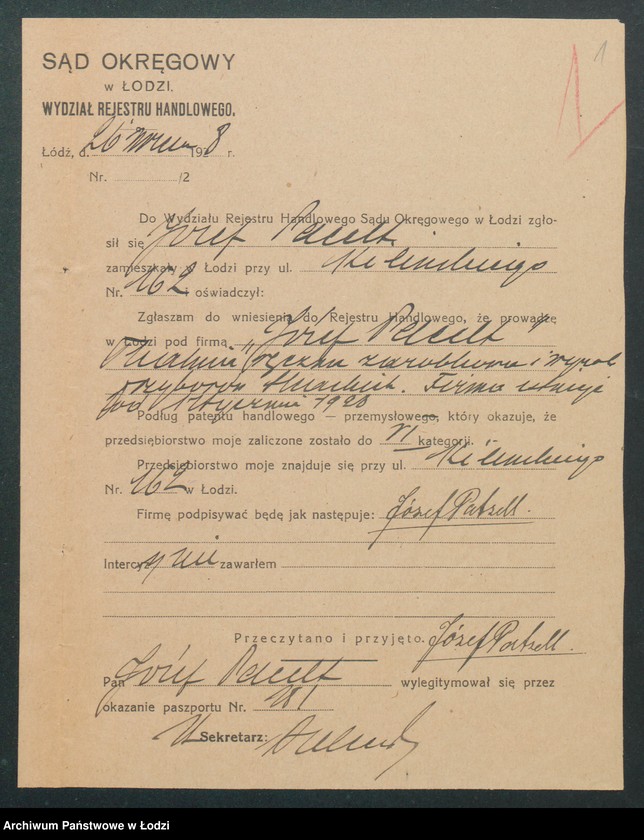 1
SĄD OKRĘGOWY
w ŁODZI,
WYDZIAŁ REJESTRU HANDLOWEGO.
Łódź, d. 26 192 8 r.
Nr. /2
Do Wydziału Rejestru Handlowego Sądu Okręgowego w Łodzi zgło-
sił się Józef
zamieszkały w Łodzi przy ul. Kilińskiego
Nr. 162 i oświadczył:
Zgłaszam do wniesienia do Rejestru Handlowego, że prowadzę
w Łodzi pod firmą „Józef
Tkalnia ręczna zarobkowa i
przyborów tkackich. Firma istnieje
od 1 stycznia 1928
Podług patentu handlowego — przemysłowego, który okazuje, że
przedsiębiorstwo moje zaliczone zostało do VI kategorji.
Przedsiębiorstwo moje znajduje się przy ul. Kilińskiego
Nr. 162 w Łodzi.
Firmę podpisywać będę jak następuje: Józef Patzelt.
Intercyzy nie zawarłem
Przeczytano i przyjęto. Józef Patzelt.
Pan Józef wylegitymował się przez
okazanie paszportu Nr.
Sekretarz:
Archiwum Państwowe w Łodzi